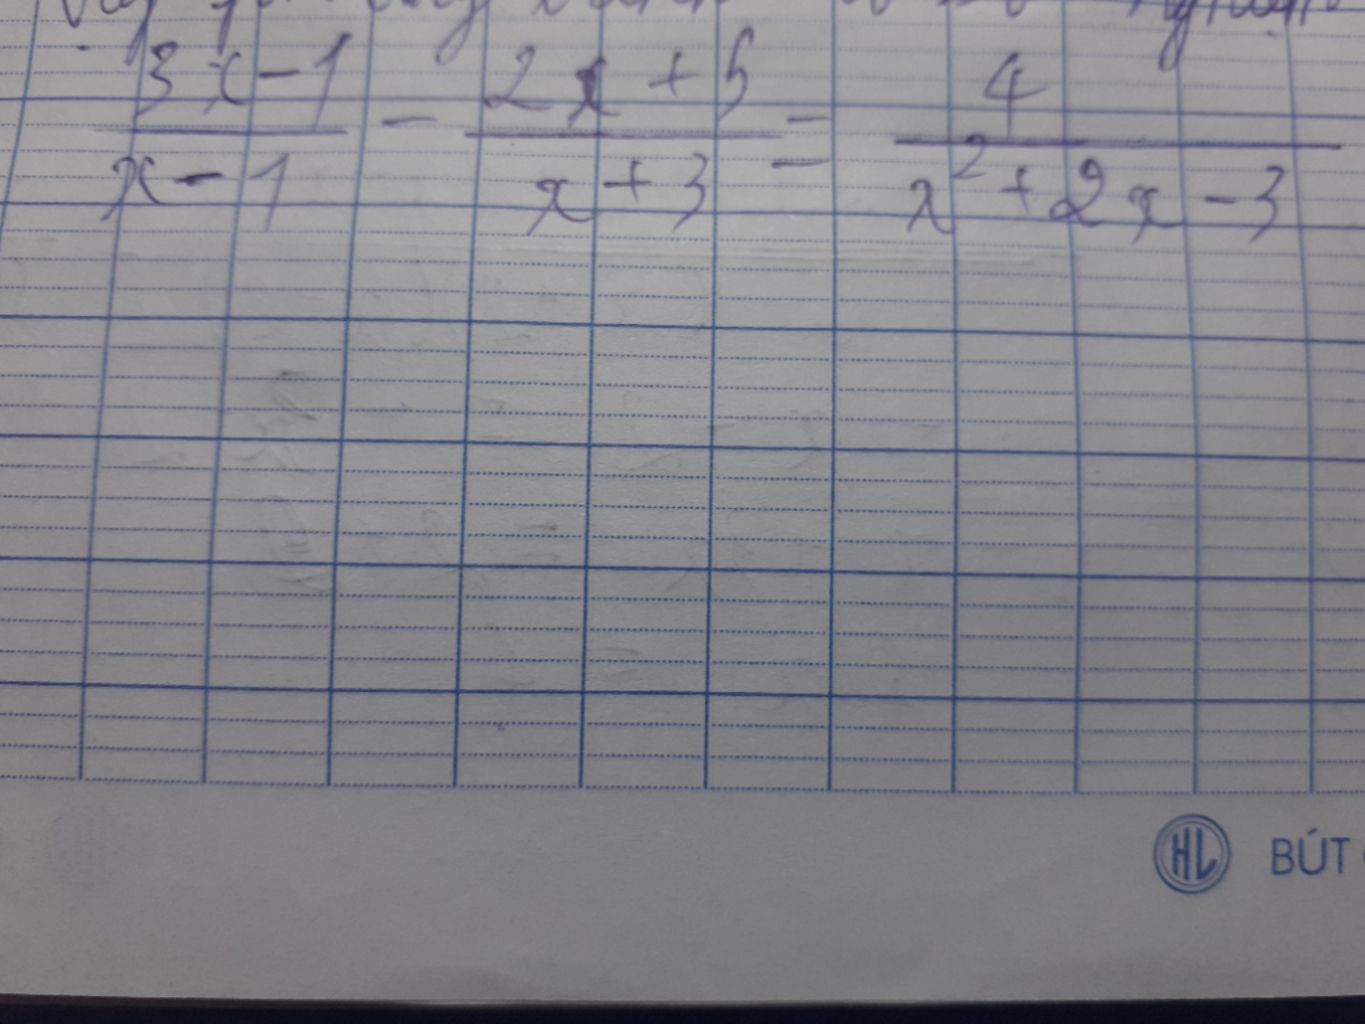 3x - 1 / x - 1 - 2x + 5 / x + 3 = 4 / x² + 2x - 3
HL BÚT